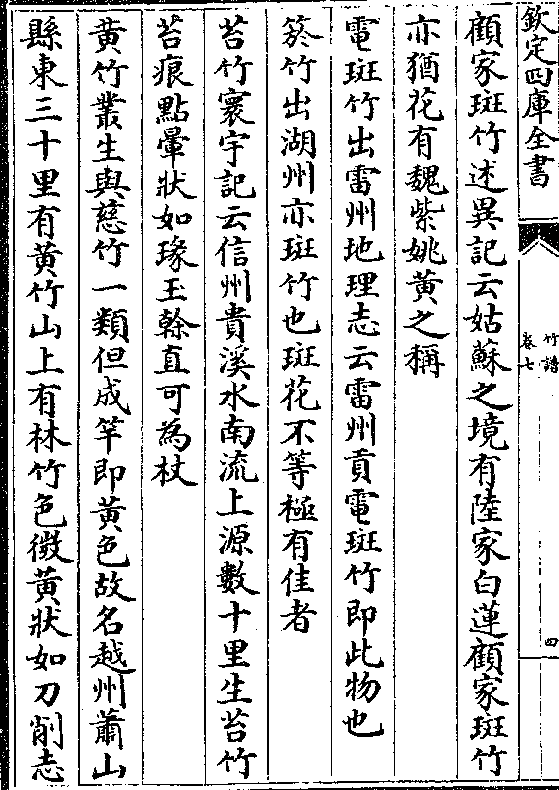 欽定四庫全書
竹譜
卷七
四
顧家斑竹述異記云姑蘇之境有陸家白蓮顧家斑竹
亦猶花有魏紫姚黄之稱
電斑竹出雷州地理志云雷州貢電斑竹即此物也
箊竹出湖州亦斑竹也斑花不等極有佳者
苔竹寰宇記云信州貴溪水南流上源數十里生苔竹
苔痕點暈狀如瑑玉榦直可為杖
黄竹叢生與慈竹一類但成竿即黄色故名越州蕭山
縣東三十里有黄竹山上有林竹色微黄狀如刀削志